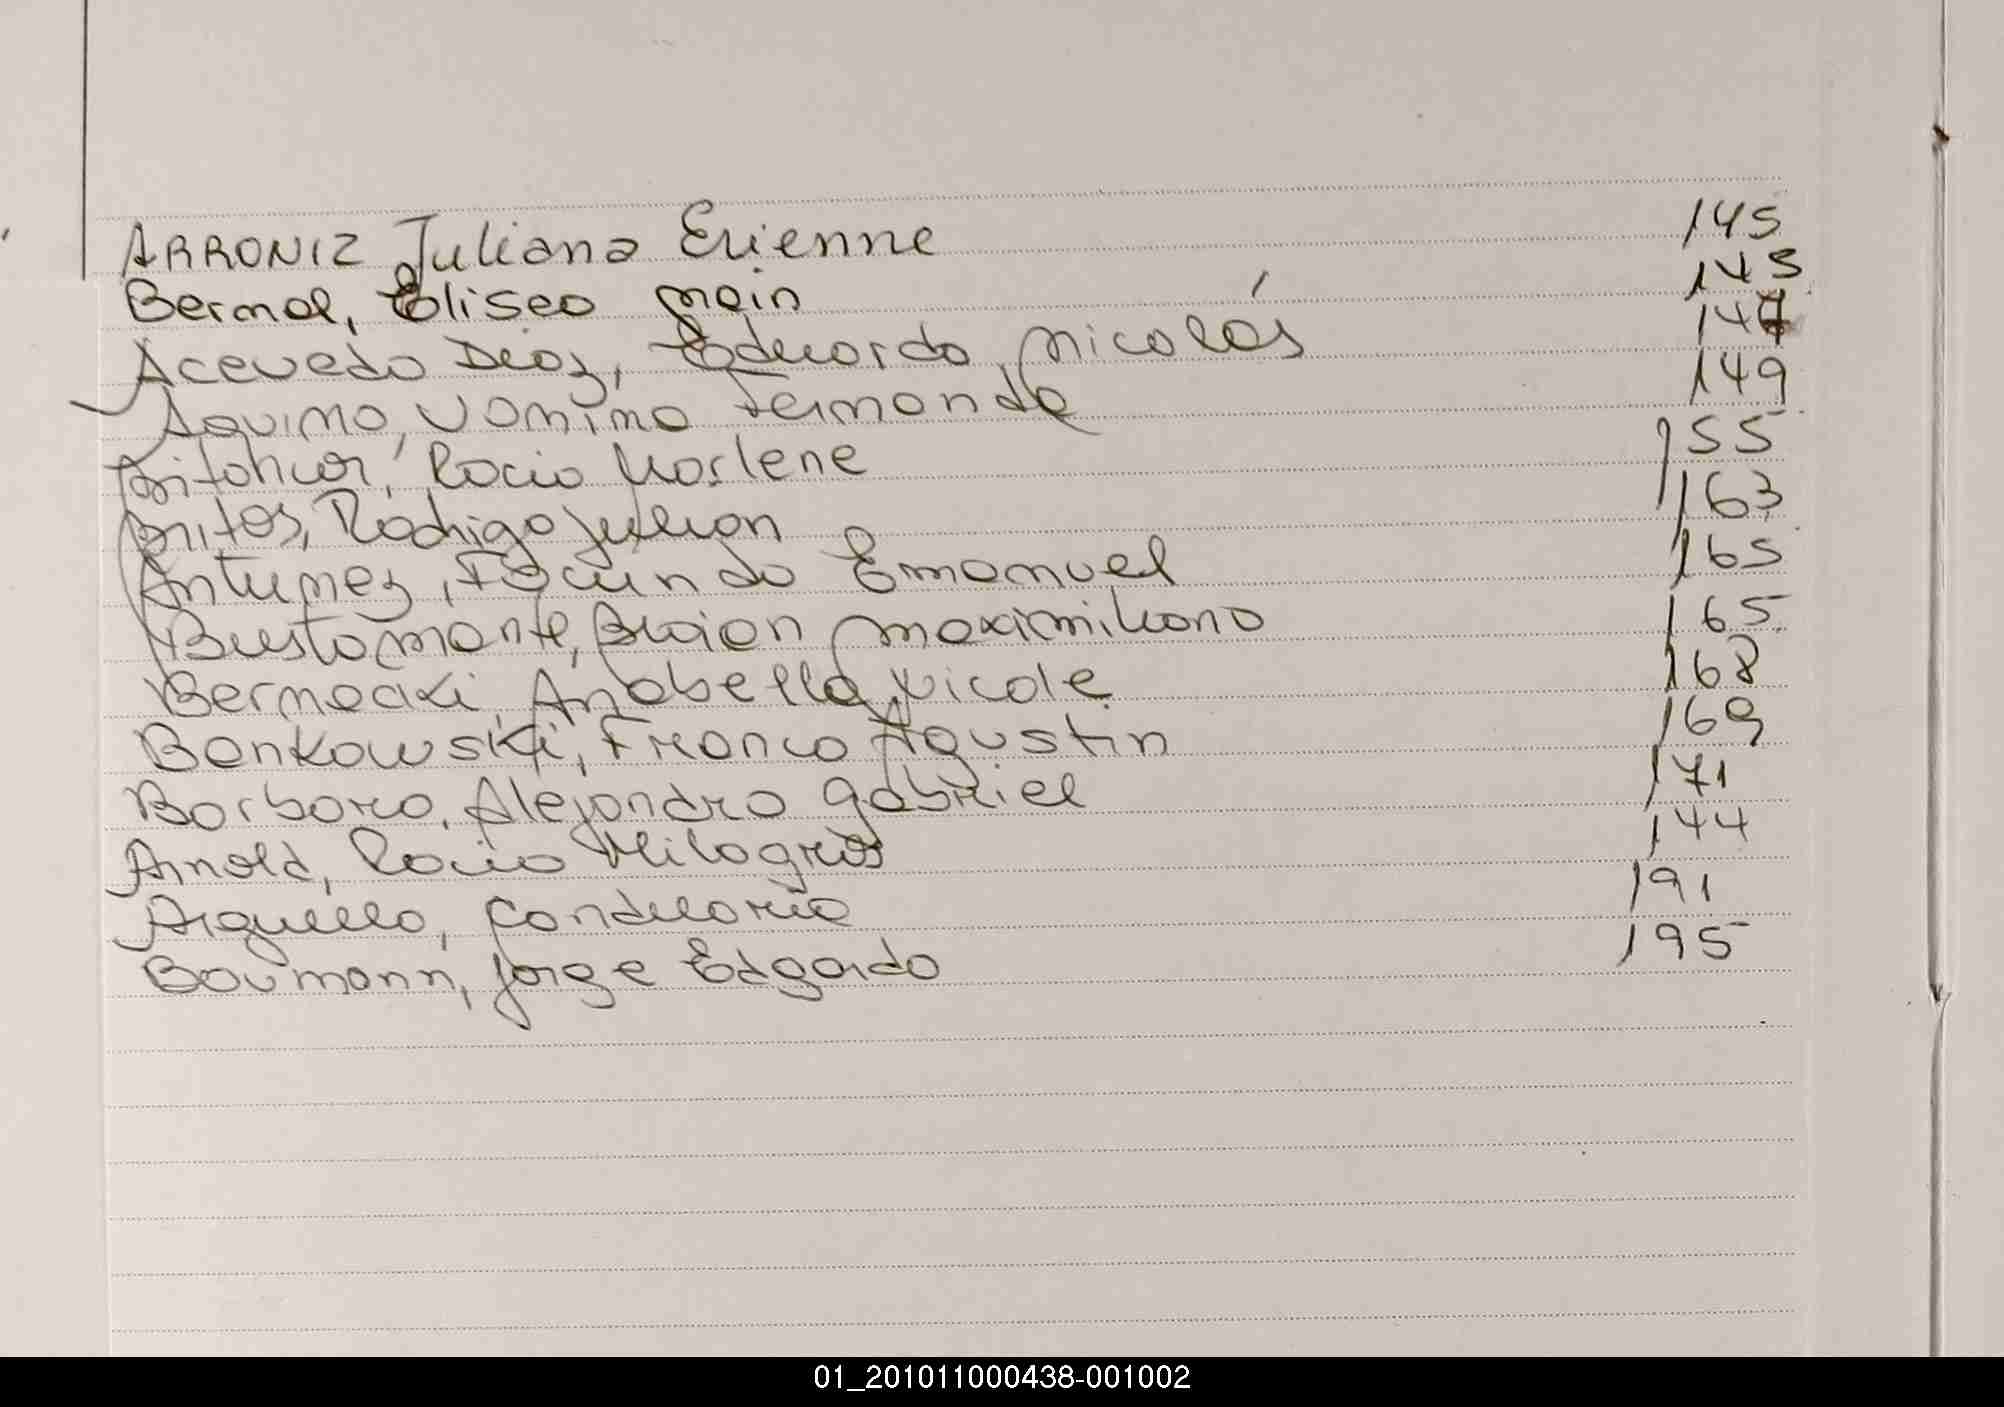 ARRONIZ Juliana Evienne 145
Bernal, Eliseo 145
Acevedo Diaz, Eduardo Nicolás 147
Aquino, Fernanda 149
Rocio Marlene 155
Britos, Rodrigo Julian 163
Antunez, Facundo Emanuel 165
Bustamante, Braion Maximiliano 165
Anabella Nicole 168
Bonkowski, Franco Agustin 169
Borboro, Alejandro Gabriel 171
Arnold, Rocio Milagros 144
Arguello, Candelaria 191
Baumann, Jorge Edgardo 195
01_201011000438-001002